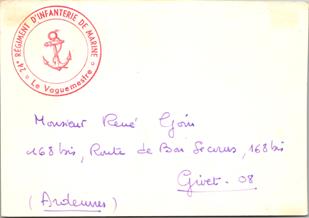 24e RÉGIMENT D'INFANTERIE DE MARINE
Le Vaguemestre
Monsieur René
168 bis, Route de Bon Secours, 168 bis
Givet - 08
(Ardennes)